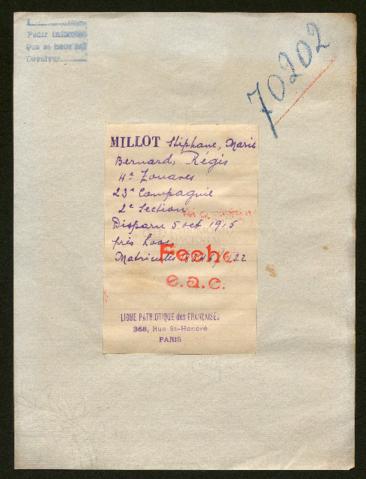 Pedir informes
que se
70202
MILLOT Stéphane, Marie
Bernard, Régis
4e Zouaves
23e Compagnie
2e Section
Disparu 5 oct 1915
près Loos
Matricule 22
Feche
e.a.c.
LIGUE PATRIOTIQUE des FRANÇAISES
368, Rue St-Honoré
PARIS